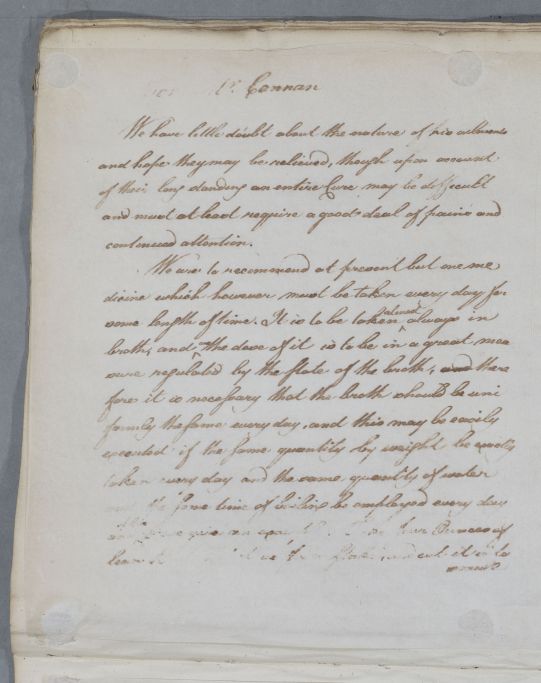 Mr. Connan
We have little doubt about the nature of his ailments
and hope they may be relieved, though upon account
of their long standing an entire Cure may be difficult
and must at least require a good deal of pains and
continued attention.
We are to recommend at present but one me
dicine which however must be taken every day for
some length of time. It is to be taken almost always in
broth, and the dose of it is to be in a great mea
sure regulated by the State of the broth, and there
fore it is necessary that the broth should be uni
formly the same every day, and this may be easily
executed if the same quantity by weight be exactly
taken every day and the same quantity of water
and the same time of boiling be employed every day
four Ounces of
lean
cut it into